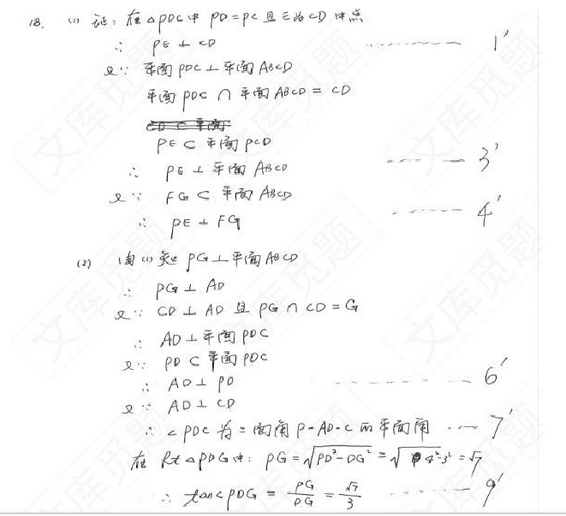 18. (1) 证: 在△PDC中 PD=PC 且E为CD中点
∴ PE⊥CD ------ 1'
又∵ 平面PDC⊥平面ABCD
平面PDC∩平面ABCD=CD
PE⊂平面PCD
∴ PE⊥平面ABCD ------ 3'
又∵ FG⊂平面ABCD
∴ PE⊥FG ------ 4'
(2) 由(1)知 PG⊥平面ABCD
∴ PG⊥AD
又∵ CD⊥AD 且 PG∩CD=G
∴ AD⊥平面PDC
又∵ PD⊂平面PDC
∴ AD⊥PD ------ 6'
又∵ AD⊥CD
∴ ∠PDC为二面角P-AD-C的平面角 --- 7'
在Rt△PDG中: PG=√(PD²-DG²)=√(4²-3²)=√7
∴ tan∠PDG=PG/DG=√7/3 ------ 9'
文库觅题